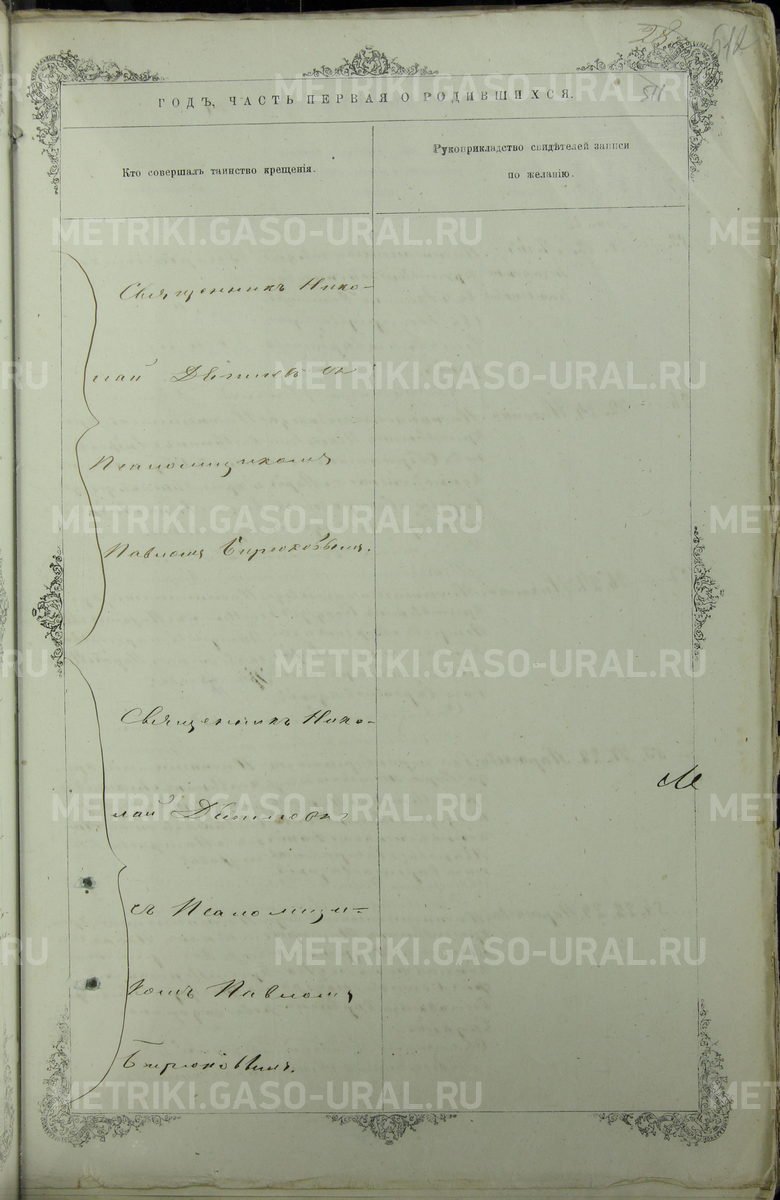 512
511
ГОДЪ, ЧАСТЬ ПЕРВАЯ О РОДИВШИХСЯ.
Кто совершалъ таинство крещенія.
Рукоприкладство свидѣтелей записи
по желанію.
Священникъ Нико-
лай
Псаломщикомъ
Павломъ Бирюковымъ.
Священникъ Нико-
лай
съ Псаломщи-
комъ Павломъ
Бирюковымъ.
METRIKI.GASO-URAL.RU